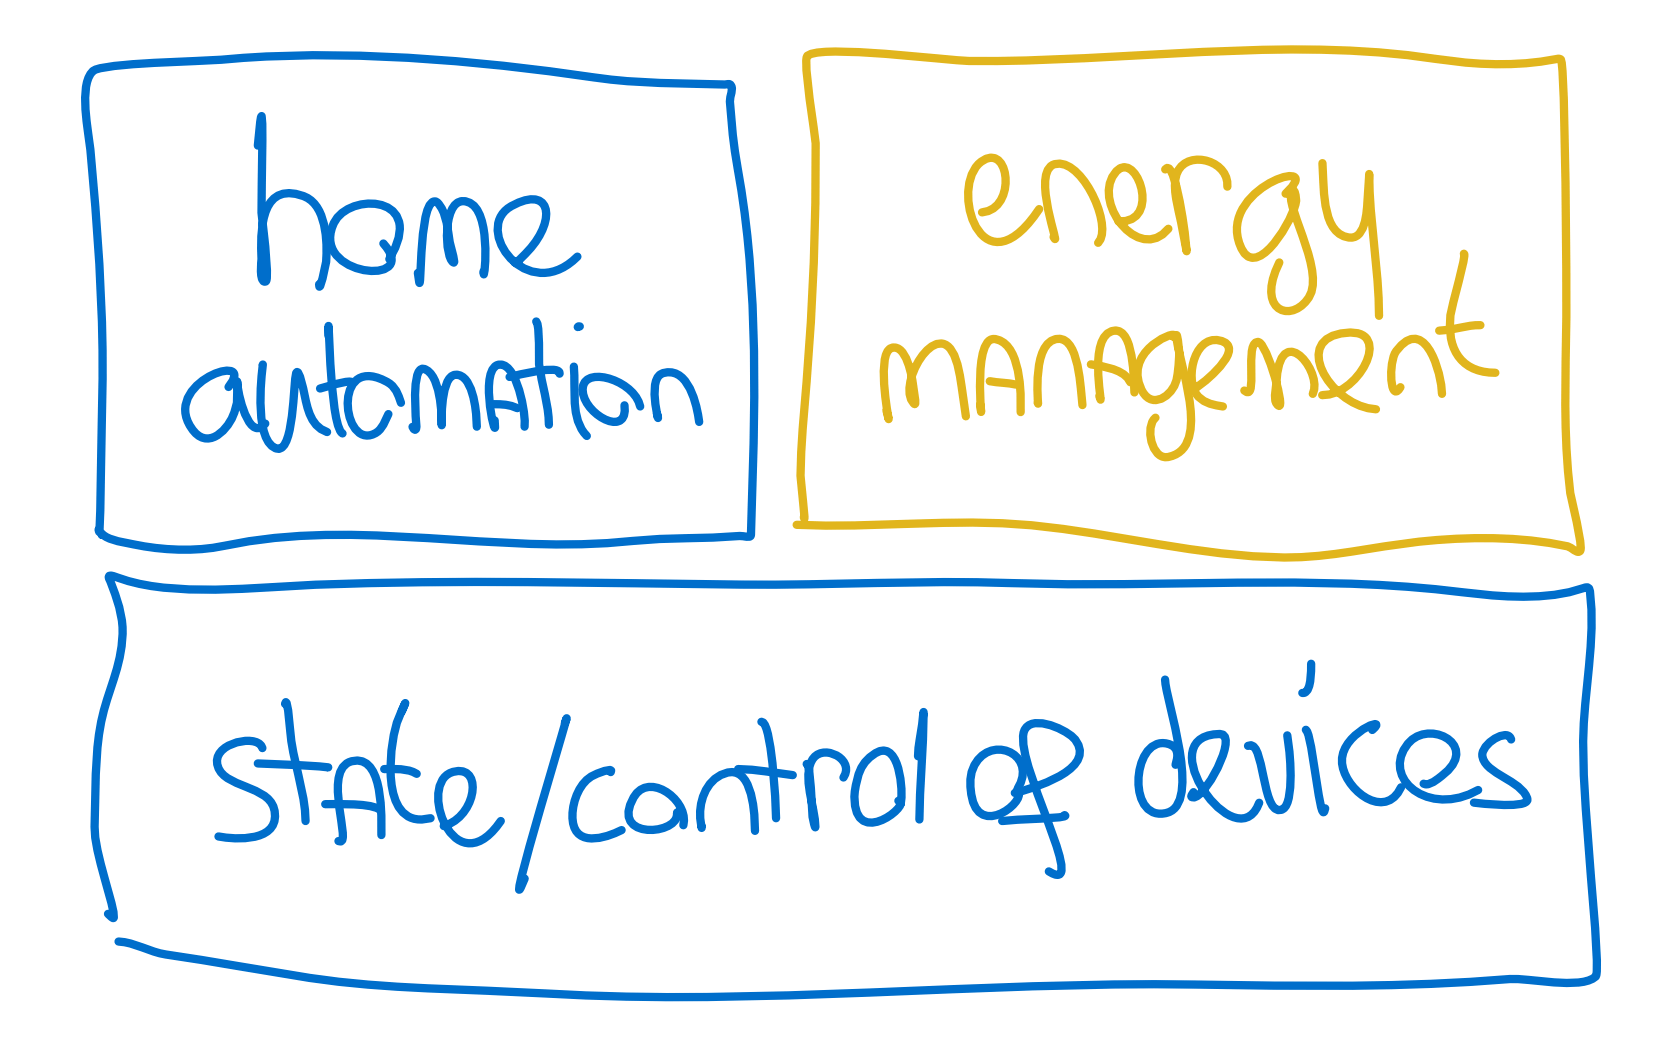 home
automation
energy
management
state/control of devices